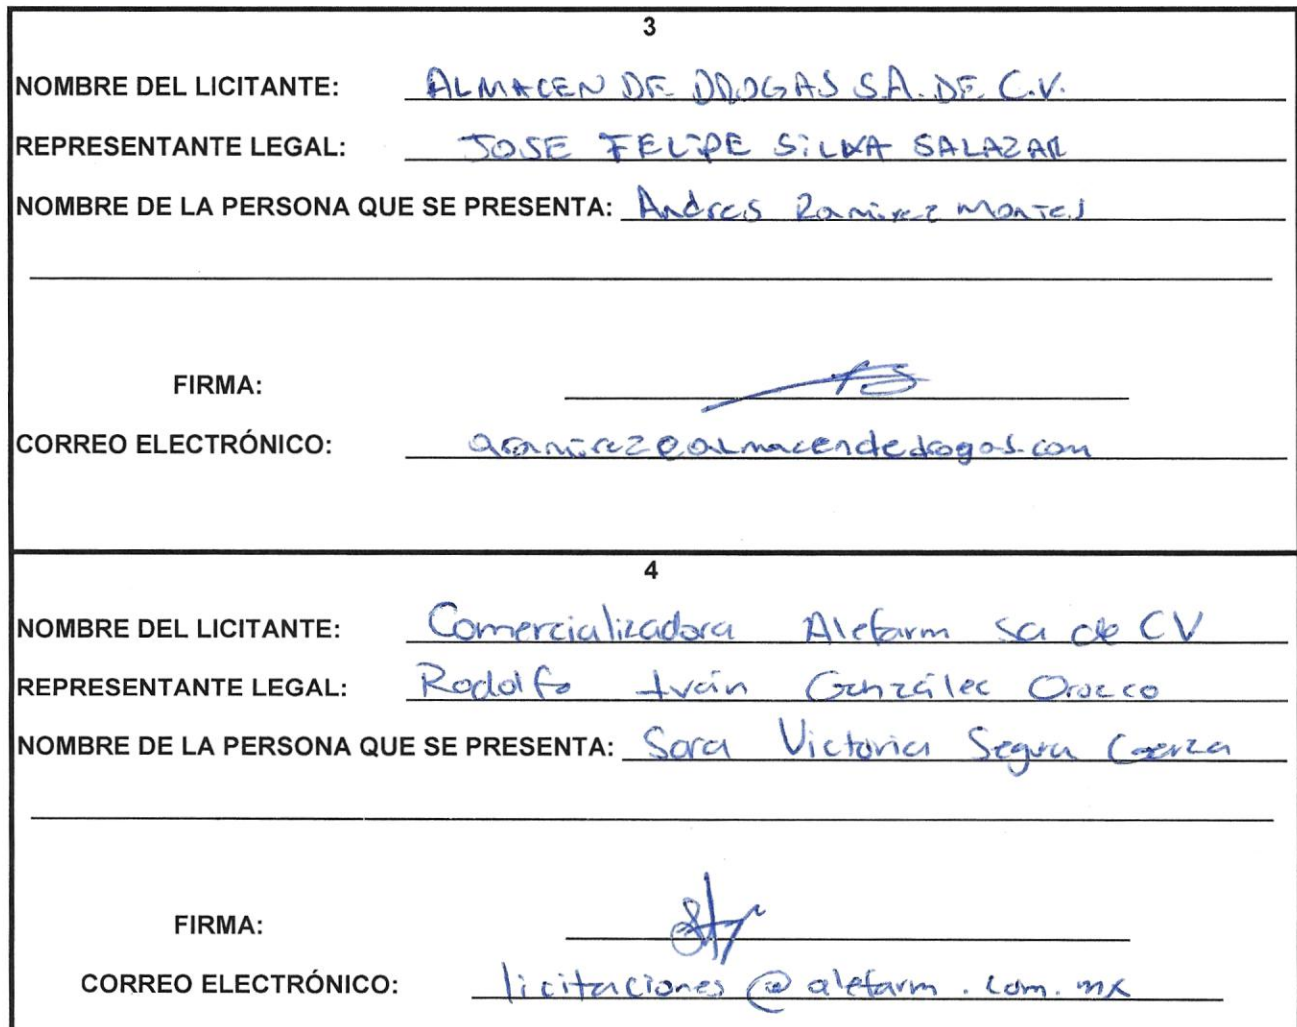 3
NOMBRE DEL LICITANTE: ALMACEN DE DROGAS S.A. DE C.V.
REPRESENTANTE LEGAL: JOSE FELIPE SILVA SALAZAR
NOMBRE DE LA PERSONA QUE SE PRESENTA: Andres Ramirez Montes
FIRMA:
CORREO ELECTRÓNICO: aramirez@almacendedrogas.com
4
NOMBRE DEL LICITANTE: Comercializadora Alefarm sa de CV
REPRESENTANTE LEGAL: Rodolfo Iván González Orozco
NOMBRE DE LA PERSONA QUE SE PRESENTA: Sara Victoria Segura Garza
FIRMA:
CORREO ELECTRÓNICO: licitaciones@alefarm.com.mx